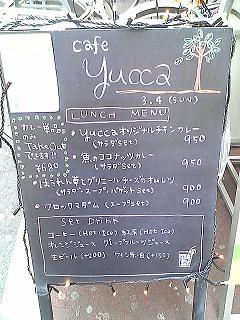 cafe
yucca
3.4 (SUN)
LUNCH MENU
・Yuccaオリジナルチキンカレー
(サラダset) 950
・魚のココナッツカレー
(サラダset) 950
・ほうれん草とグリエールチーズのオムレツ
(サラダ・スープ・バゲットset) 900
・クロックマダム (スープset) 900
カレー単品
のみ
Take Out
できます!!
¥680
Set Drink
コーヒー(Hot Ice) 紅茶(Hot Ice)
オレンジジュース グレープフルーツジュース
生ビール(+200) ワイン赤・白(+150)